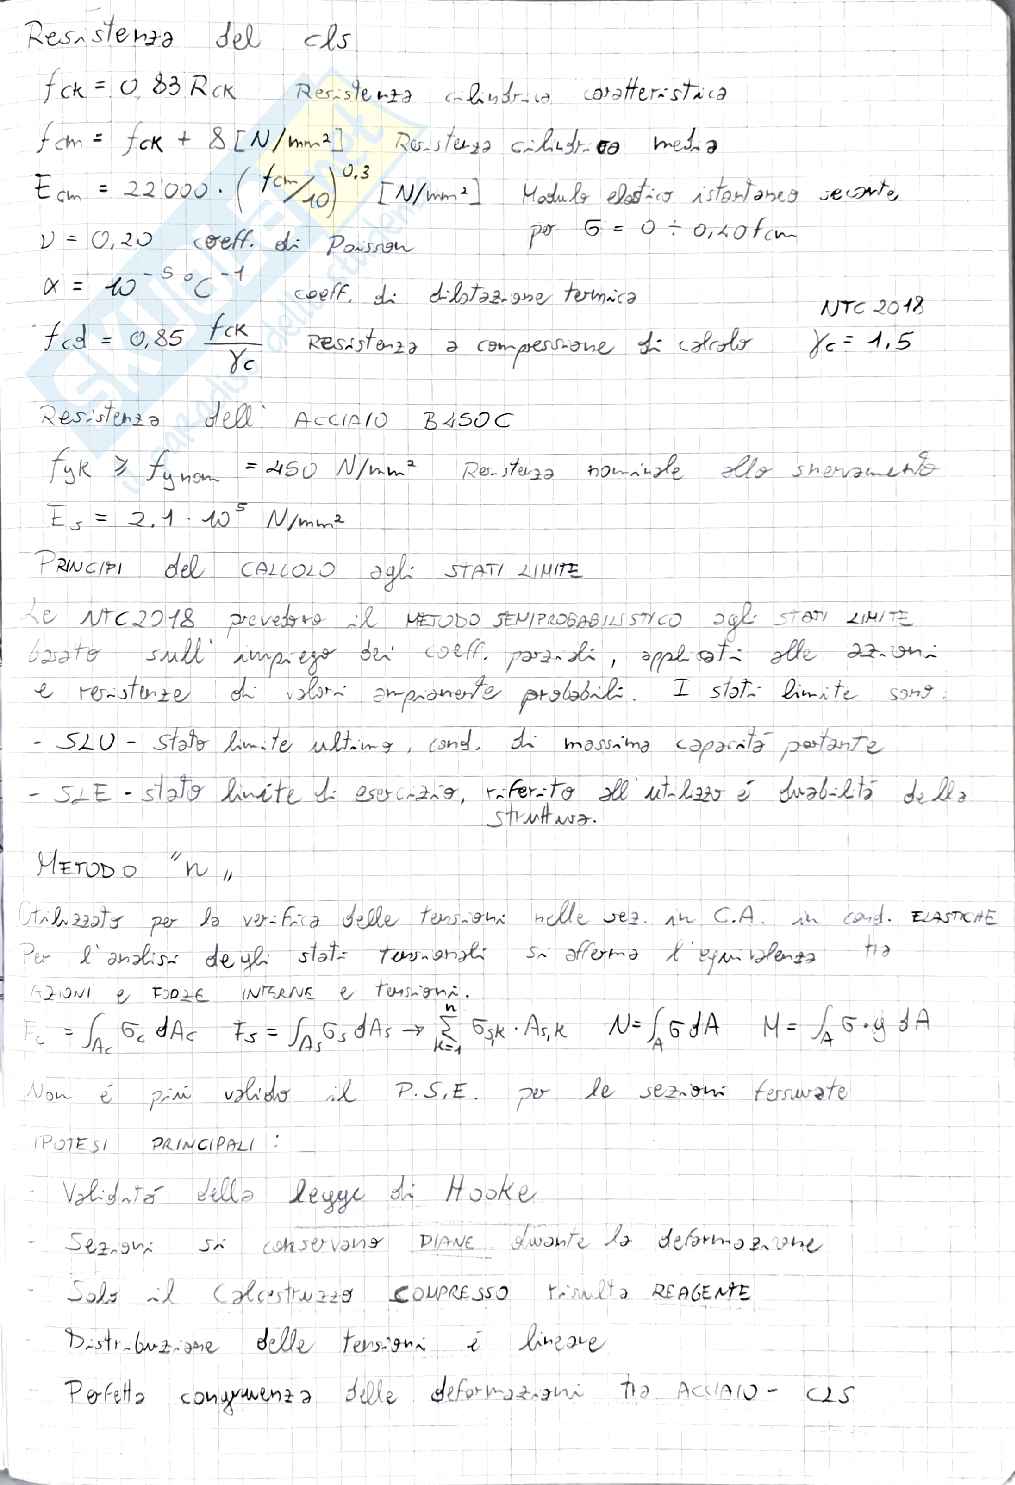 Resistenza del cls
fck = 0,83 Rck Resistenza cilindrica caratteristica
fcm = fck + 8 [N/mm²] Resistenza cilindrica media
Ecm = 22000 · (fcm/10)^0,3 [N/mm²] Modulo elastico istantaneo secante,
per σ = 0 ÷ 0,40 fcm
ν = 0,20 coeff. di Poisson
α = 10^-5 °C^-1 coeff. di dilatazione termica
NTC 2018
fcd = 0,85 fck/γc Resistenza a compressione di calcolo γc = 1,5
Resistenza dell' ACCIAIO B450C
fyk ≥ fy nom = 450 N/mm² Resistenza nominale allo snervamento
Es = 2,1 · 10^5 N/mm²
PRINCIPI del CALCOLO agli STATI LIMITE
Le NTC2018 prevedono il METODO SEMIPROBABILISTICO agli STATI LIMITE
basato sull' impiego dei coeff. parziali, applicati alle azioni
e resistenze di valori ampiamente probabili. I stati limite sono:
- SLU - stato limite ultimo, cond. di massima capacità portante
- SLE - stato limite di esercizio, riferito all' utilizzo é durabilità della
struttura.
METODO "n"
Utilizzato per la verifica delle tensioni nelle sez. in C.A. in cond. ELASTICHE
Per l'analisi degli stati tensionali si afferma l'equivalenza tra
AZIONI e FORZE INTERNE e tensioni.
Fc = ∫Ac σc dAc Fs = ∫As σs dAs → Σ(k=1, n) σs,k · As,k N = ∫A σ dA M = ∫A σ · y dA
Non é più valido il P.S.E. per le sezioni fessurate
IPOTESI PRINCIPALI:
- Validità della legge di Hooke
- Sezioni si conservano PIANE durante la deformazione
- Solo il Calcestruzzo COMPRESSO risulta REAGENTE
- Distribuzione delle tensioni é lineare
- Perfetta congruenza delle deformazioni tra ACCIAIO - CLS